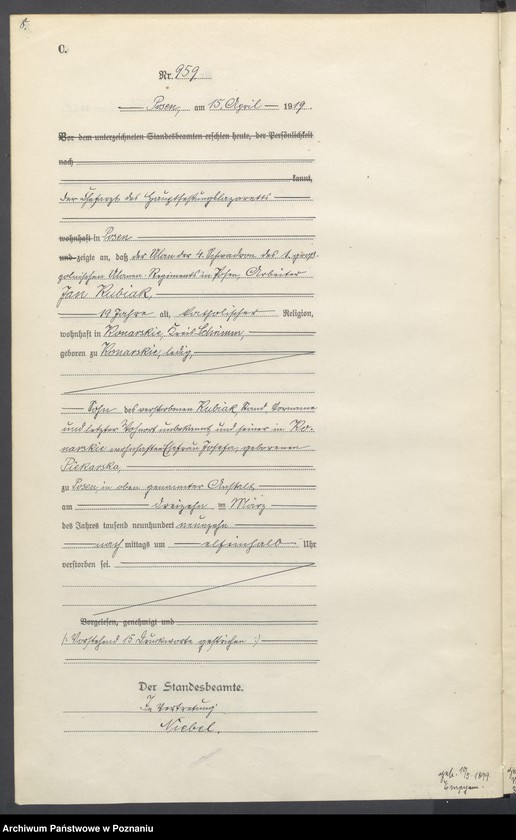 8.
C.
Nr. 959
Posen, am 15. April 1919.
Vor dem unterzeichneten Standesbeamten erschien heute, der Persönlichkeit
nach
kannt,
der Chefarzt des Hauptfestungslazaretts
wohnhaft in Posen
und zeigte an, daß der Ulan der 4. Schwadron des 1. groß-
polnischen Ulanen-Regiments in Posen, Arbeiter
Jan Rubiak,
19 Jahre alt, katholischer Religion,
wohnhaft in Konarskie, Kreis Schrimm,
geboren zu Konarskie, ledig,
Sohn des verstorbenen Rubiak, Stand, Vorname
und letzter Wohnort unbekannt, und seiner in Ko-
narskie wohnhaften Ehefrau Josefa, geborenen
Piekarska,
zu Posen, in oben genannter Anstalt,
am dreizehn ten März
des Jahres tausend neunhundert neunzehn
nach mittags um elfeinhalb Uhr
verstorben sei.
Vorgelesen, genehmigt und
(: Vorstehend 15 Druckworte gestrichen :)
Der Standesbeamte.
In Vertretung
Niebel.
geb. 1899
Archiwum Państwowe w Poznaniu